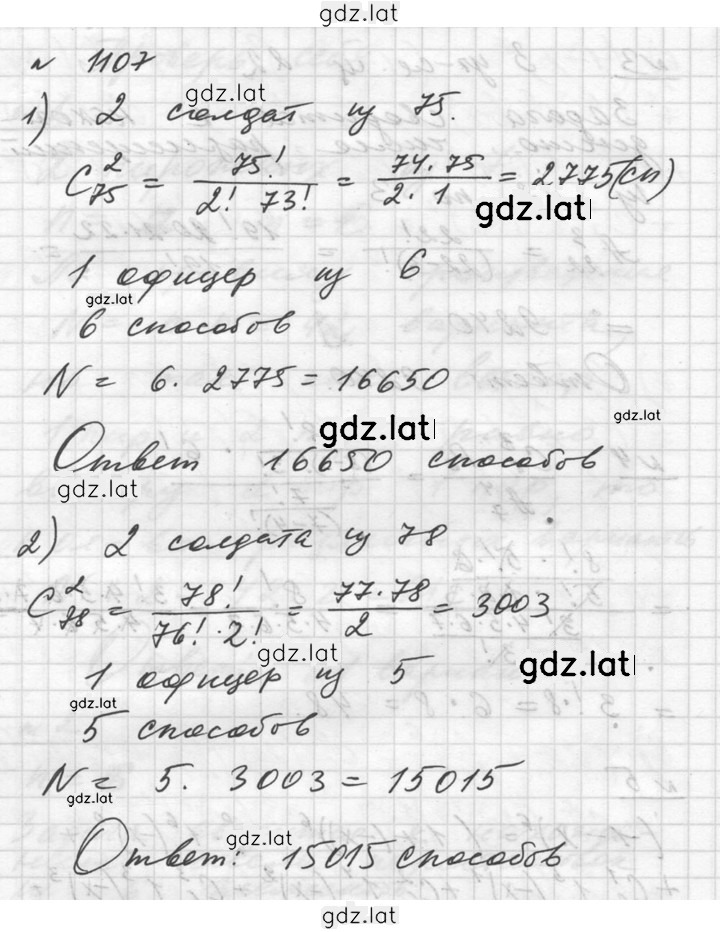 gdz.lat
№ 1107
gdz.lat
1) 2 солдат из 75.
C²₇₅ = 75! / 2! 73! = 74·75 / 2·1 = 2775(сп)
gdz.lat
1 офицер из 6
gdz.lat
6 способов
N = 6. 2775 = 16650
gdz.lat
gdz.lat
Ответ 16650 способов
gdz.lat
2) 2 солдата из 78
C²₇₈ = 78! / 76!·2! = 77·78 / 2 = 3003
gdz.lat
gdz.lat
1 офицер из 5
gdz.lat
5 способов
N = 5. 3003 = 15015
gdz.lat
gdz.lat
Ответ: 15015 способов
gdz.lat